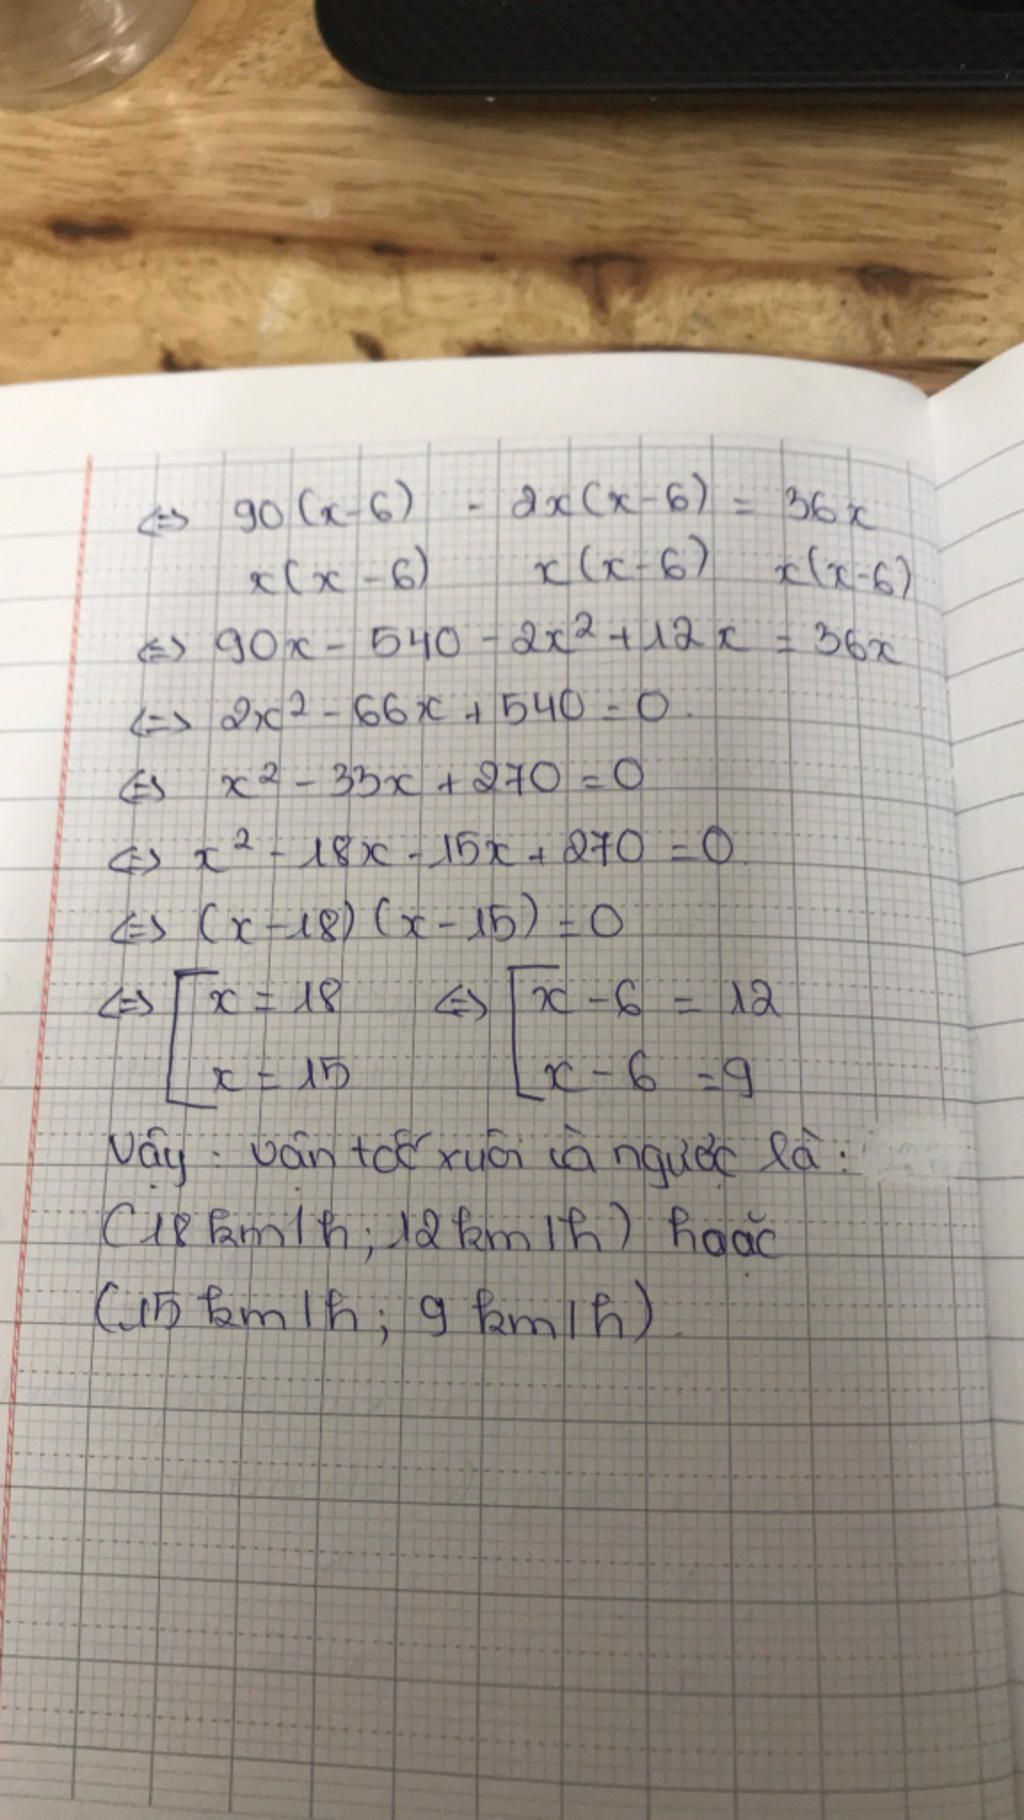 ⇔ 90(x-6) - 2x(x-6) = 36x
x(x-6) x(x-6) x(x-6)
⇔ 90x - 540 - 2x² + 12x = 36x
⇔ 2x² - 66x + 540 = 0.
⇔ x² - 33x + 270 = 0
⇔ x² - 18x - 15x + 270 = 0.
⇔ (x-18)(x-15) = 0
⇔ [x = 18 ⇔ [x - 6 = 12
x = 15 x - 6 = 9
Vậy: vận tốc xuôi và ngược là:
(18km/h; 12km/h) hoặc
(15 km/h; 9 km/h).